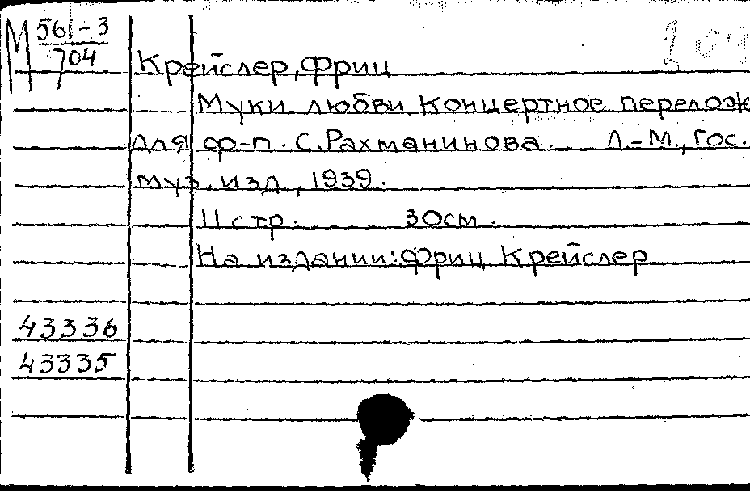 М 561-3
704
Крейслер, Фриц
Муки любви. Концертное перелож
для ф-п. С. Рахманинова. Л.-М., Гос.
муз. изд., 1939.
11 стр. 30см.
На издании: Фриц Крейслер
43336
43335